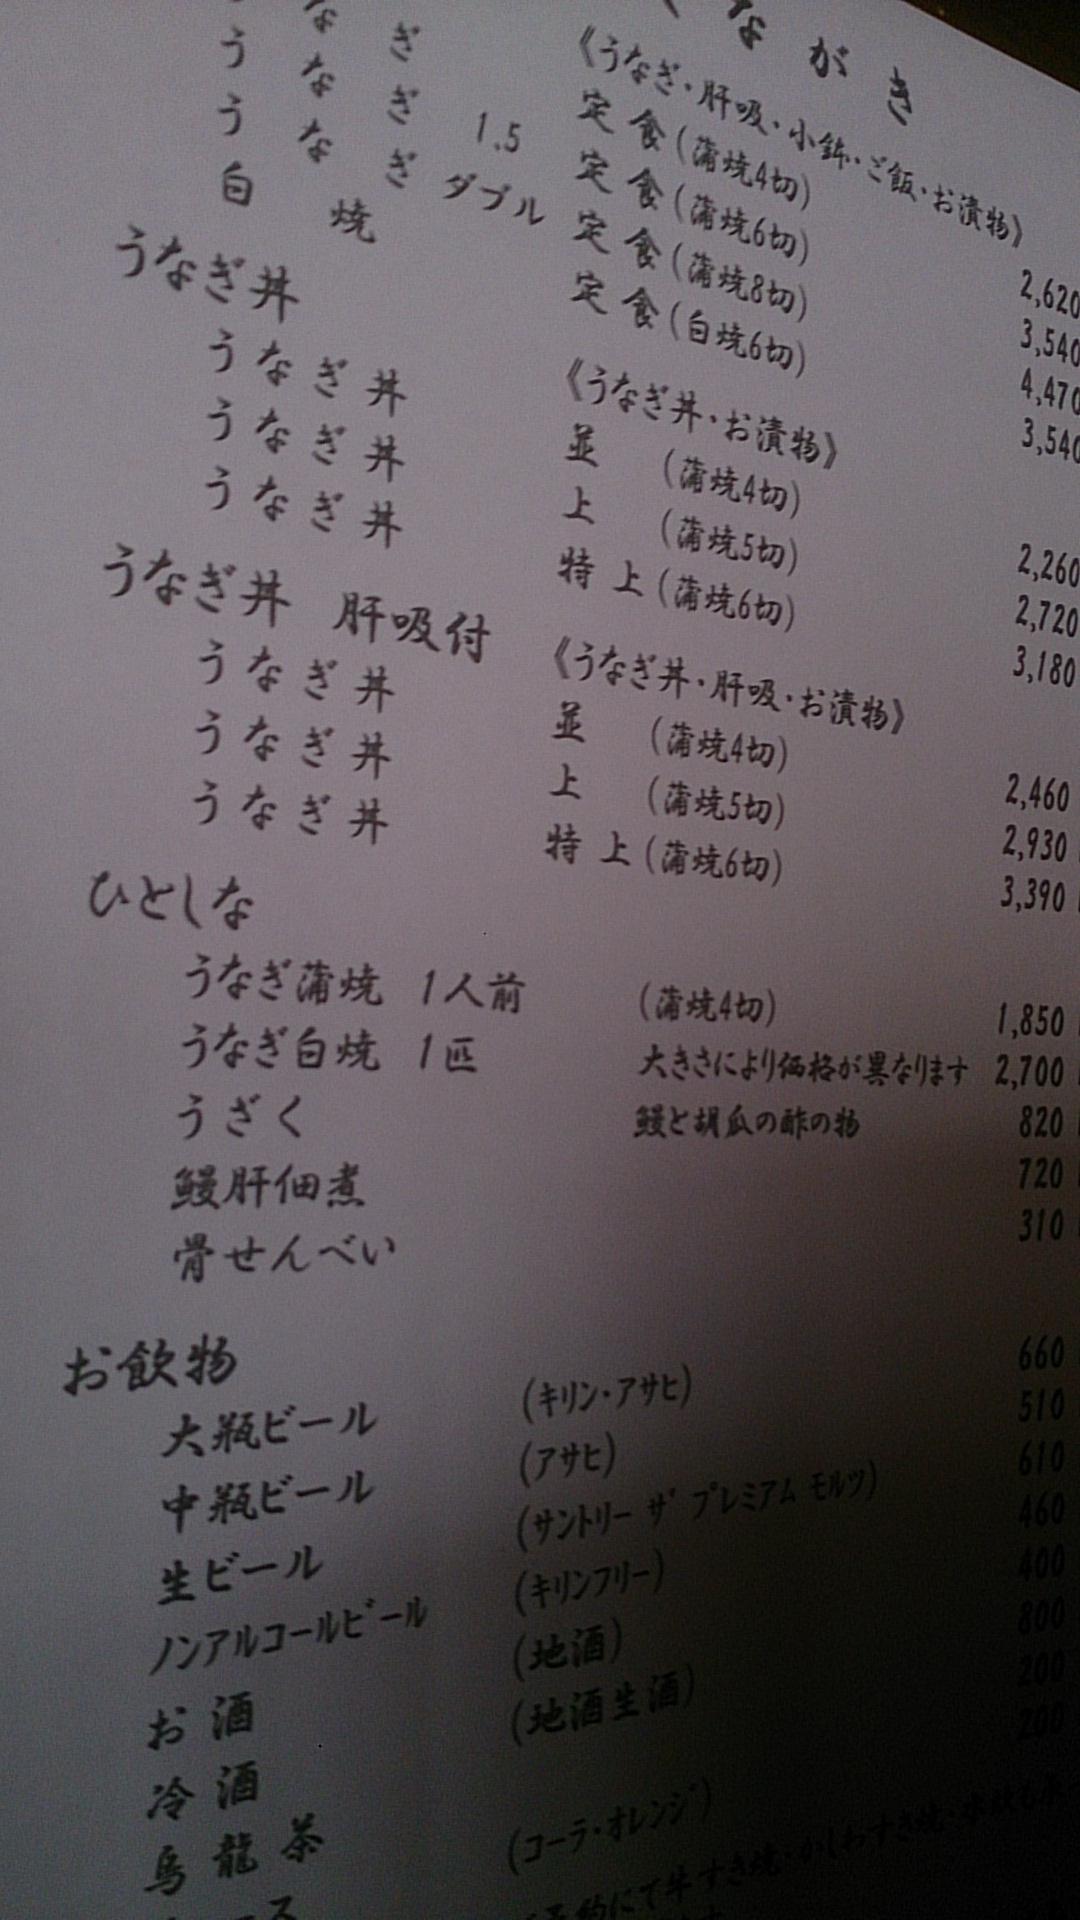 ながき
《うなぎ・肝吸・小鉢・ご飯・お漬物》
うなぎ 定食(蒲焼4切) 2,620
うなぎ 1.5 定食(蒲焼6切) 3,540
うなぎ ダブル 定食(蒲焼8切) 4,470
白焼 定食(白焼6切) 3,540
うなぎ丼 《うなぎ丼・お漬物》
うなぎ丼 並 (蒲焼4切) 2,260
うなぎ丼 上 (蒲焼5切) 2,720
うなぎ丼 特上(蒲焼6切) 3,180
うなぎ丼 肝吸付 《うなぎ丼・肝吸・お漬物》
うなぎ丼 並 (蒲焼4切) 2,460
うなぎ丼 上 (蒲焼5切) 2,930
うなぎ丼 特上(蒲焼6切) 3,390
ひとしな
うなぎ蒲焼 1人前 (蒲焼4切) 1,850
うなぎ白焼 1匹 大きさにより価格が異なります 2,700
うざく 鰻と胡瓜の酢の物 820
鰻肝佃煮 720
骨せんべい 310
お飲物
大瓶ビール (キリン・アサヒ) 660
中瓶ビール (アサヒ) 510
生ビール (サントリー ザ プレミアム モルツ) 610
ノンアルコールビール (キリンフリー) 460
お酒 (地酒) 400
冷酒 (地酒生酒) 800
烏龍茶 200
ース (コーラ・オレンジ) 200
予約にて牛すき焼・かしわすき焼・水炊も